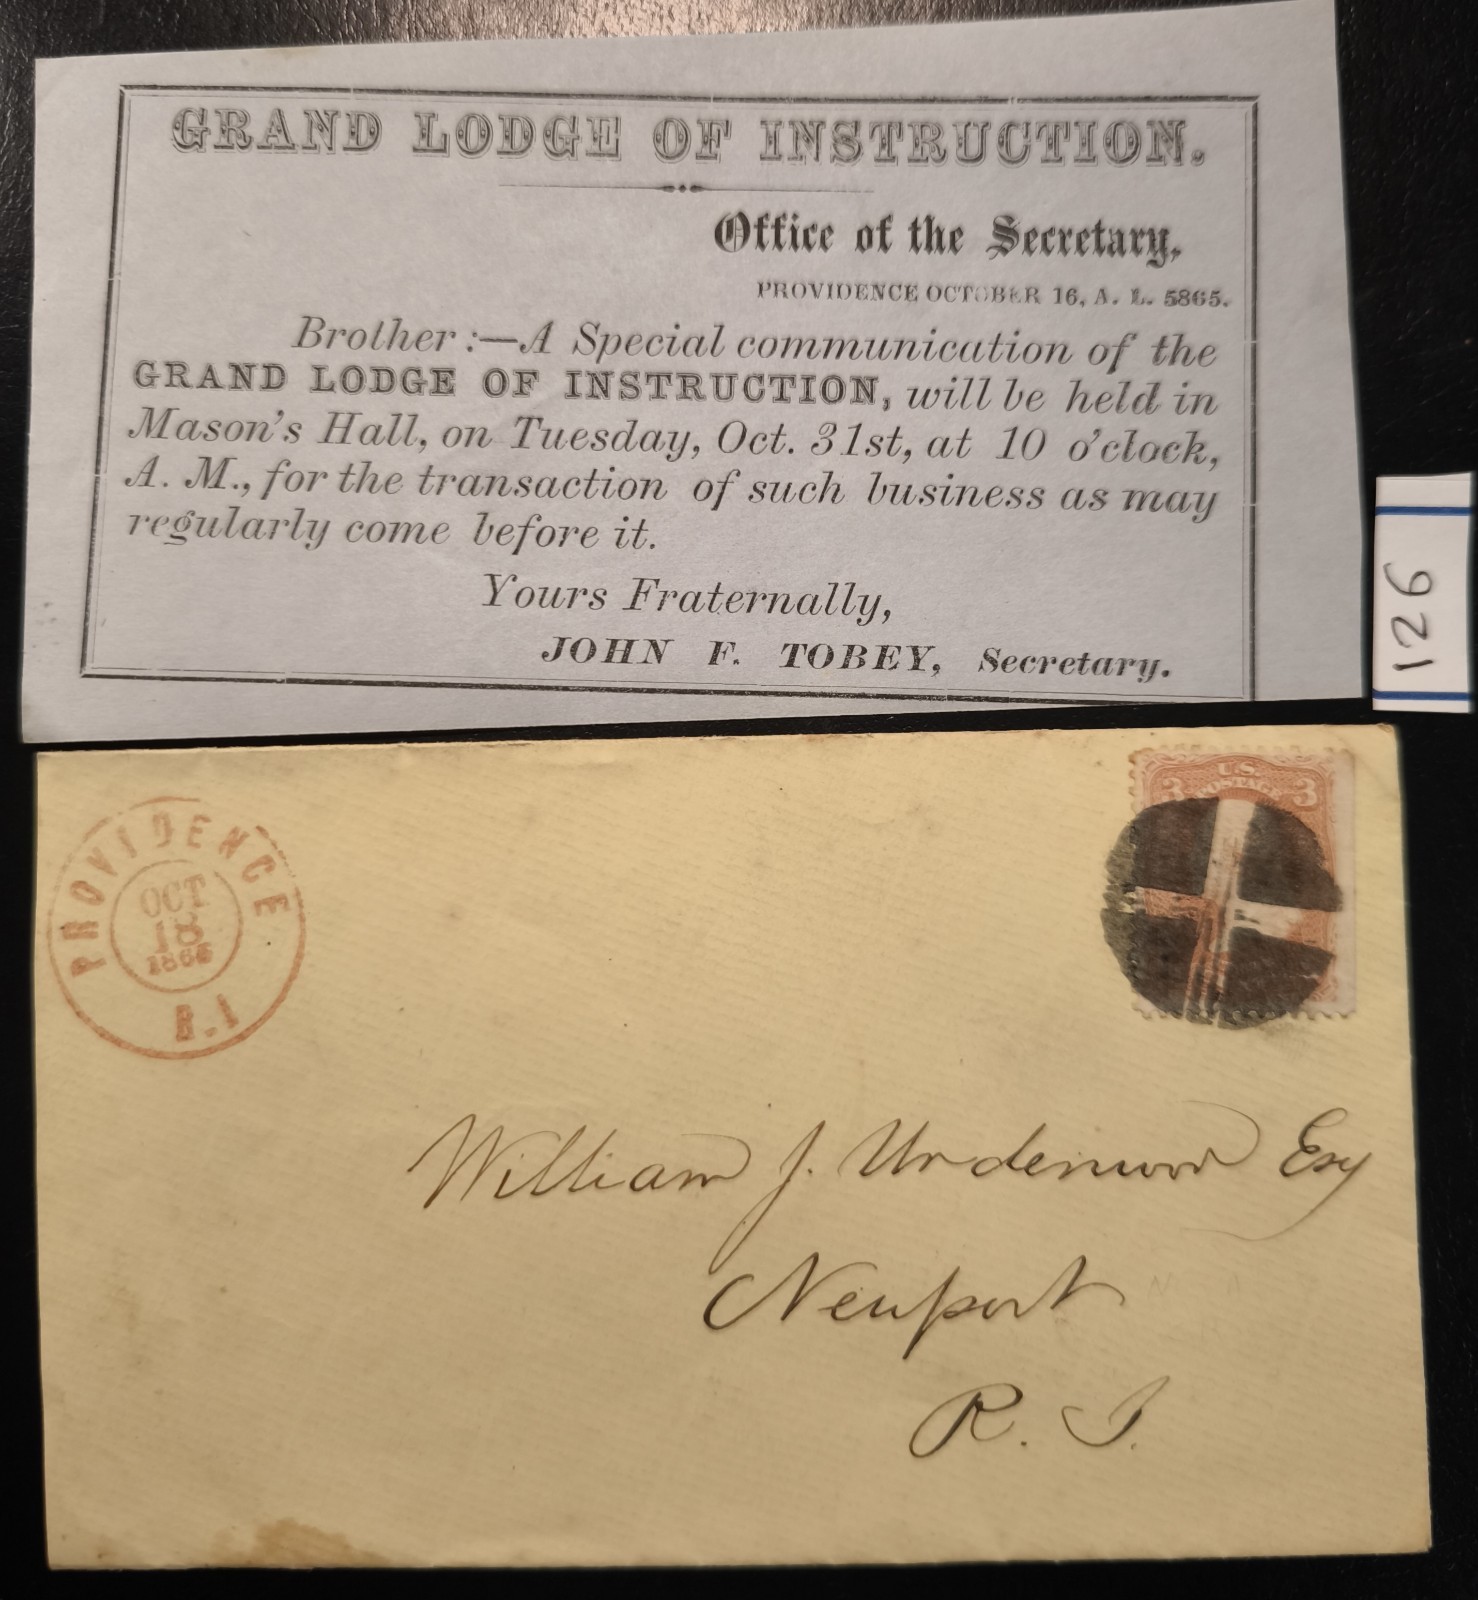 GRAND LODGE OF INSTRUCTION.
Office of the Secretary,
PROVIDENCE OCTOBER 16, A. L. 5865.
Brother :—A Special communication of the
GRAND LODGE OF INSTRUCTION, will be held in
Mason's Hall, on Tuesday, Oct. 31st, at 10 o'clock,
A. M., for the transaction of such business as may
regularly come before it.
Yours Fraternally,
JOHN F. TOBEY, Secretary.
126
PROVIDENCE
OCT
18
1865
R.I
U.S.
POSTAGE
3 3
William J. Underwood Esq
Newport
R. I.